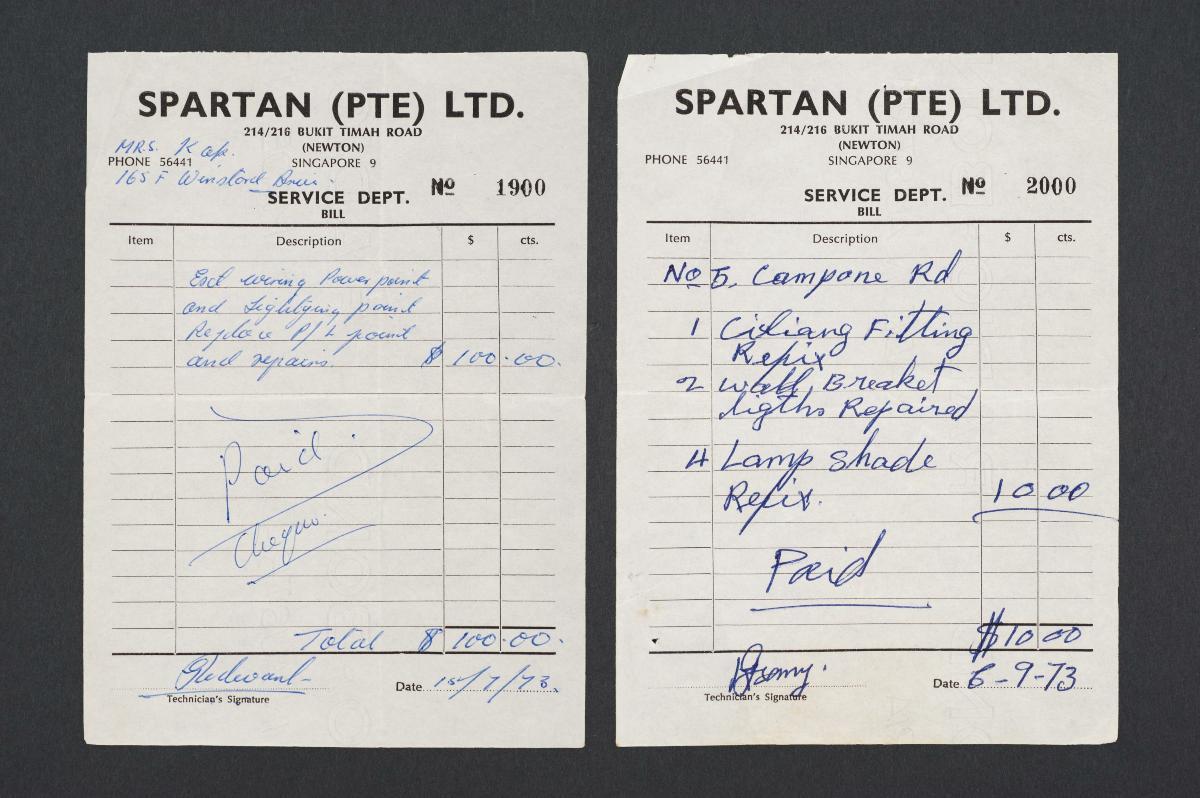 SPARTAN (PTE) LTD.
214/216 BUKIT TIMAH ROAD
(NEWTON)
MRS. Kop.
PHONE 56441
SINGAPORE 9
165 F Winstord
SERVICE DEPT.
No 1900
BILL
Item Description $ cts.
Ext wiring Powerpoint
and Lightging point
Replace P/L point
and repairs. $ 100.00.
Paid.
Cheque.
Total $ 100.00.
Technician's Signature
Date 15/7/73.
SPARTAN (PTE) LTD.
214/216 BUKIT TIMAH ROAD
(NEWTON)
PHONE 56441
SINGAPORE 9
SERVICE DEPT.
No 2000
BILL
Item Description $ cts.
No 5, Campone Rd
1 Ciliang Fitting
Refix
2 Wall Breaket
ligths Repaired
4 Lamp shade
Refix. 10 00
Paid
$10 00
Technician's Signature
Date 6-9-73